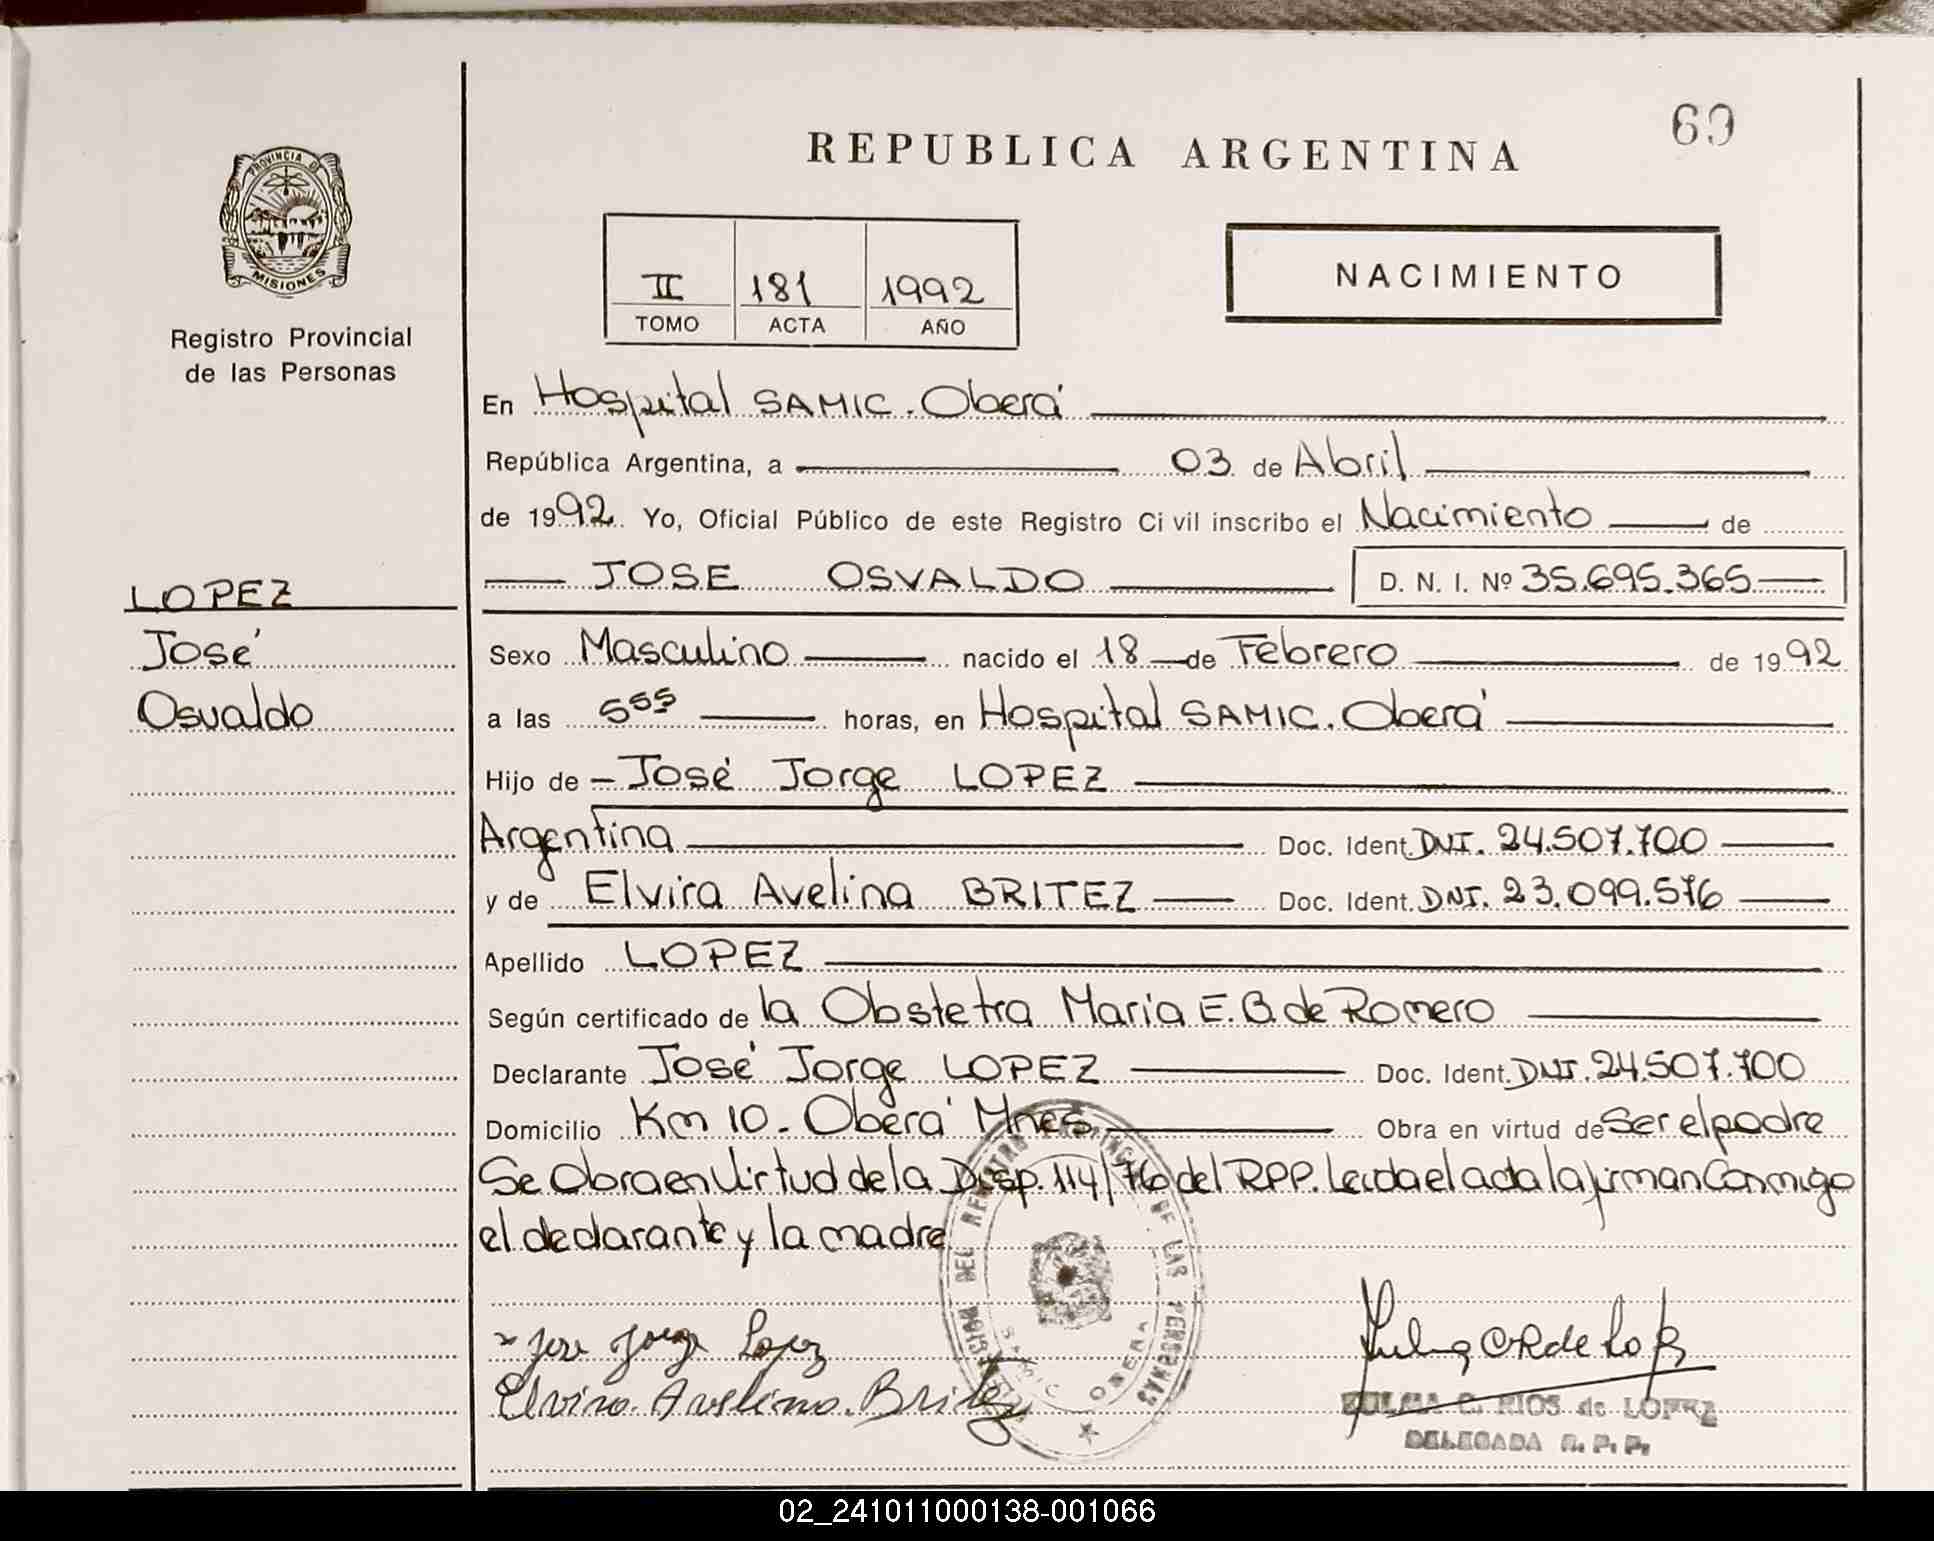 69
REPUBLICA ARGENTINA
PROVINCIA D
MISIONES
Registro Provincial
de las Personas
II 181 1992
TOMO ACTA AÑO
NACIMIENTO
En Hospital SAMIC. Oberá
República Argentina, a 03 de Abril
de 1992. Yo, Oficial Público de este Registro Ci vil inscribo el Nacimiento de
JOSE OSVALDO D. N. I. Nº 35.695.365
LOPEZ
José
Osvaldo
Sexo Masculino nacido el 18 de Febrero de 1992
a las 5 55 horas, en Hospital SAMIC. Oberá
Hijo de José Jorge LOPEZ
Argentina Doc. Ident. DNI. 24.507.700
y de Elvira Avelina BRITEZ Doc. Ident. DNI. 23.099.576
Apellido LOPEZ
Según certificado de la Obstetra María E. B. de Romero
Declarante José Jorge LOPEZ Doc. Ident. DNI. 24.507.700
Domicilio Km 10. Oberá Mnes Obra en virtud de Ser el padre
Se Obra en Virtud de la Disp. 114/76 del RPP. Leida el acta la firman Conmigo
el declarante y la madre
Jose Jorge Lopez
Elvira. Avelina. Britez
DEL REGISTRO PROVINCIAL DE LAS PERSONAS
SAMIC OBERA
ZULMA C. RIOS de LOPEZ
DELEGADA R. P. P.
02_241011000138-001066